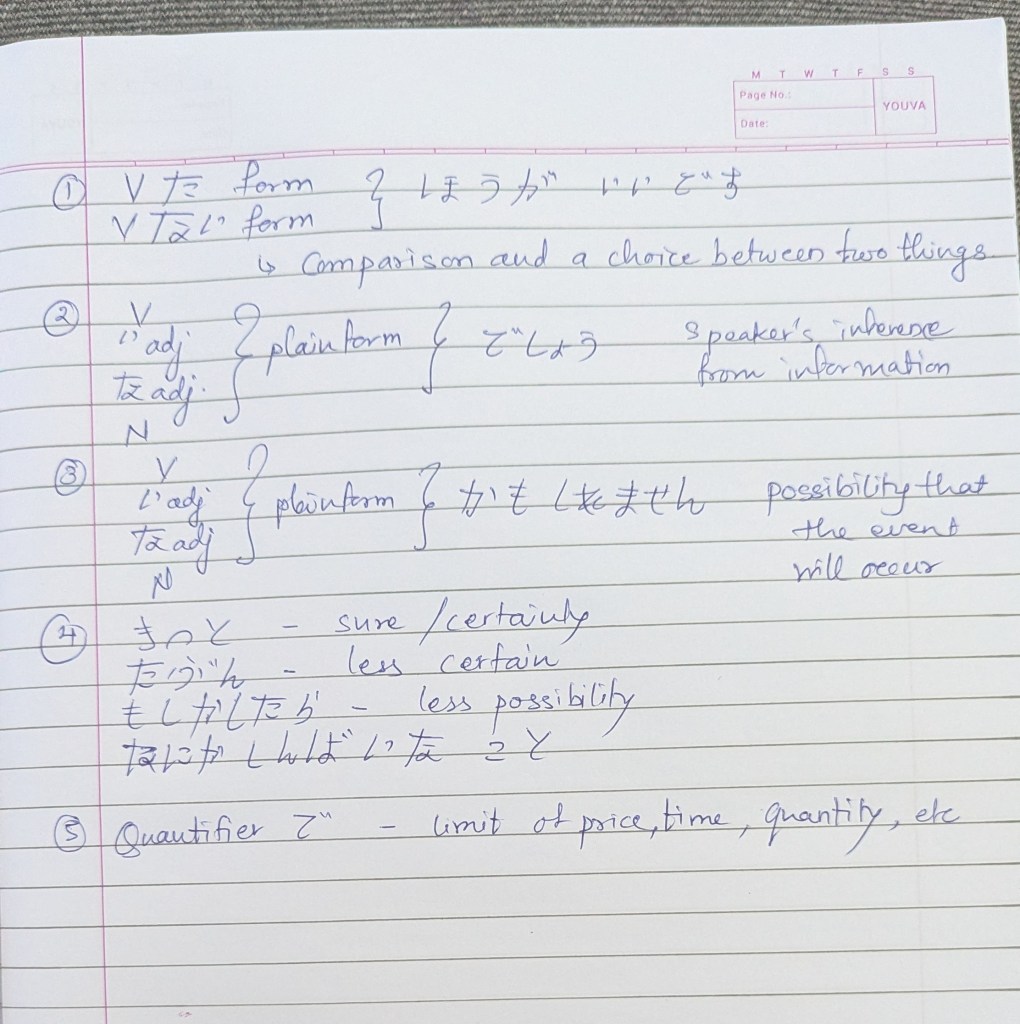 M T W T F S S
Page No.:
YOUVA
Date:
① Vた form } ほうが いいです
Vない form
↳ Comparison and a choice between two things
② V
い adj } plain form } でしょう Speaker's inference
な adj. from information
N
③ V
い adj } plain form } かもしれません possibility that
な adj the event
N will occur
④ きっと - sure / certainly
たぶん - less certain
もしかしたら - less possibility
なにか しんぱいな こと
⑤ Quantifier で - limit of price, time, quantity, etc